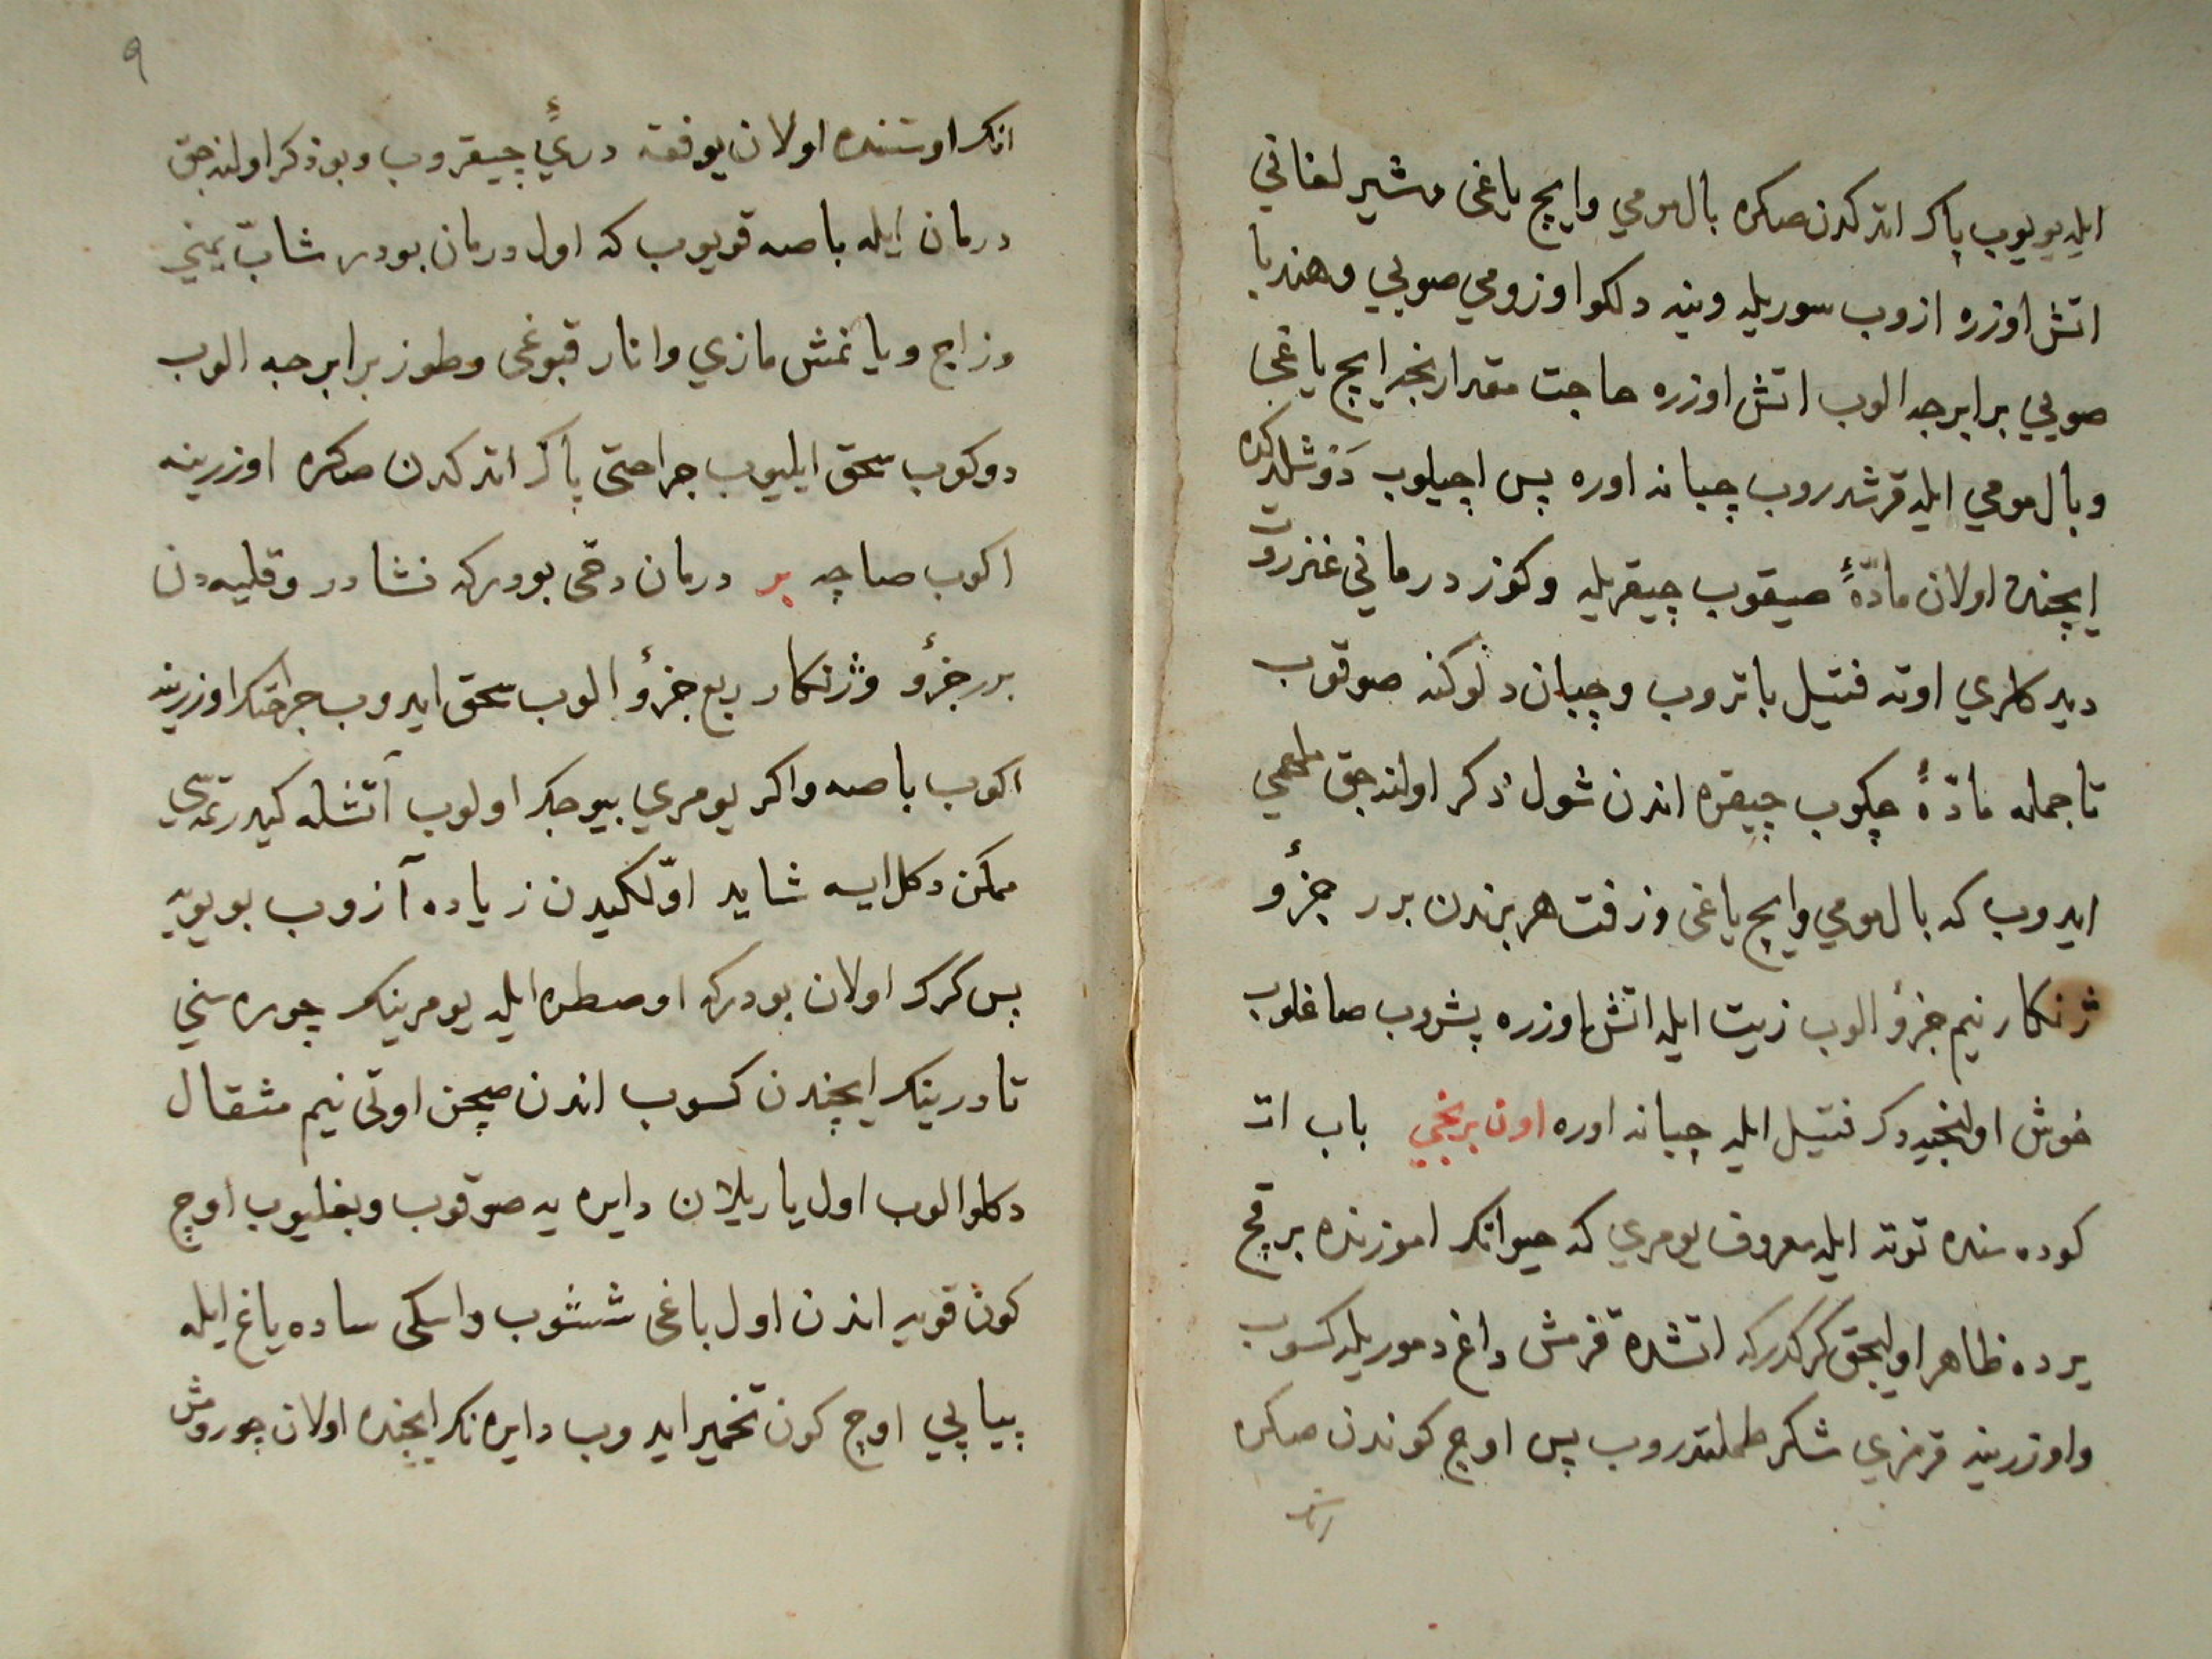 ايله يويوب پاك اتدكدن صكره بال مومي وايچ ياغى وشير لغانى
اتش اوزره ازوب سوريله وينه دلكو اوزومي صويي وهندبا
صويي برابرجه الوب اتش اوزره حاجت مقدارنجه ايچ ياغى
وبال مومي ايله قرشدروب چبانه اوره پس اچيلوب دوشلدكده
ايچنده اولان مادّۀ صيقوب چيقريله وكوز درمانى عنزروت
ديدكلري اوته فتيل باتروب وچبان دلوكنه صوقوب
تا جمله مادّۀ چكوب چيقره اندن شول ذكر اولنه جق ملهمي
ايدوب كه بال مومي وايچ ياغى وزفت هر برندن برر جزؤ
ژنكار نيم جزؤ الوب زيت ايله اتش اوزره پشروب صاغلوب
خوش اولنجيه دك فتيل ايله چبانه اوره اون برنجي باب ات
كوده سنده توته ايله معروف يومري كه حيوانك اموزنده برقچ
يرده ظاهر اوليجق كركدركه اتشده قزمش داغ دموريله كسوب
واوزرينه قرمزي شكر طملتدروب پس اوچ كوندن صكره
انك
٩
انك اوستنده اولان يوفقه دريۀ چيقروب وبو ذكر اولنه جق
درمان ايله باصه قويوب كه اول درمان بودر شابّ يمنى
وزاج ويانمش مازي وانار قبوغى وطوز برابرجه الوب
دوكوب سحق ايليوب جراحتى پاك اتدكدن صكره اوزرينه
اكوب صاچه بر درمان دخى بودركه نشادر وقليه دن
برر جزؤ وژنكار ربع جزؤ الوب سحق ايدوب جراحتك اوزرينه
اكوب باصه واكر يومري بيوجك اولوب آتشله كيدرتمه سي
ممكن دكل ايسه شايد اوّلكيدن زياده آزوب بويويه
پس كرك اولان بودركه اوصطره ايله يومرينك چوره سني
تا درينك ايچندن كسوب اندن صچن اوتى نيم مثقال
دكلو الوب اول ياريلان دايره يه صوقوب وبغليوب اوچ
كون قويه اندن اول باغى ششوب واسكى ساده ياغ ايله
پياپي اوچ كون تخمير ايدوب دايره نك ايچنده اولان چورومش